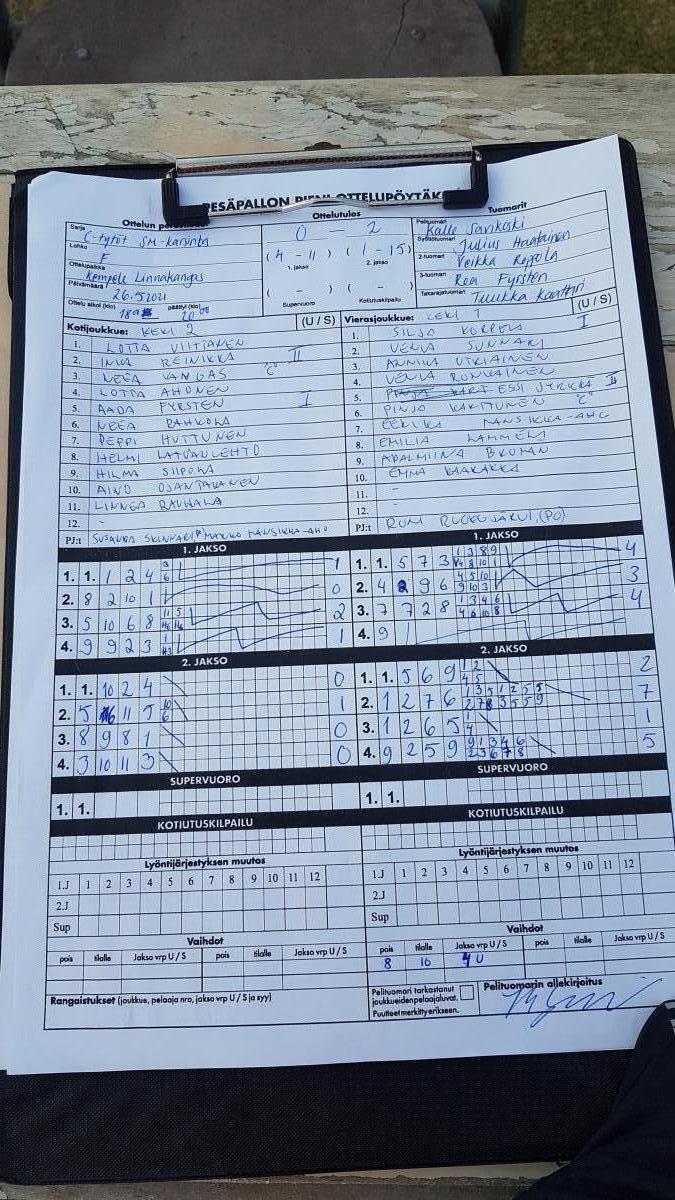 PESÄPALLON PIENI OTTELUPÖYTÄK
Ottelun
Sarja
C-tytöt SM-karsinta
Lohko
F
Ottelupaikka
Kempele Linnakangas
Päivämäärä
26.5.2021
Ottelu alkoi (klo) päättyi (klo)
20 00
Ottelutulos
0 - 2
( 4 - 11 ) ( 1 - 15 )
1. jakso 2. jakso
( - ) ( - )
Supervuoro Kotiutuskilpailu
Tuomarit
Pelituomari
Kalle Sarikoski
Syöttötuomari
Julius Haatainen
2-tuomari
Veikka Reppola
3-tuomari
Rea Fyrsten
Takarajatuomari
Tuukka
Kotijoukkue: KEKI 2 (U / S)
1. LOTTA VIITANEN
2. INKA REINIKKA II
3. NEEA KANGAS "C"
4. LOTTA AHONEN
5. AADA FYRSTEN I
6. NEEA PAHKALA
7. PEPPI HUTTUNEN
8. HELMI LATVANLEHTO
9. HILMA SIIPOLA
10. AINO OJANTAKANEN
11. LINNEA RAUHALA
12. -
PJ:t SUSANNA MARKO MANSIKKA-AHO
Vierasjoukkue: KEKI 1 (U / S)
1. SILJA KORPELA I
2. VENLA SUNNARI
3. ANNIKA UTRIAINEN
4. VENLA RONKAINEN
5. ESSI JYRKKÄ II
6. PINJA KARTTUNEN "C"
7. EERIKA MANSIKKA-AHO
8. EMILIA LAMMELA
9. ADALMIINA BROMAN
10. EMMA KAAKAKKA
11. -
12. -
PJ:t RONI RUOKOJÄRVI (PO)
1. JAKSO
1. 1. 1 2 4 3 6 1
2. 8 2 10 1 0
3. 5 10 6 8 11 5 2
4. 9 9 2 3 1
1. JAKSO
1. 1. 5 7 3 1 3 8 9 4
2. 4 2 9 6 4 5 10 9 10 3 3
3. 7 7 2 8 1 3 4 6 4 6 10 8 4
4. 9 1
2. JAKSO
1. 1. 10 2 4 0
2. 5 11 5 10 6 1
3. 8 9 8 1 0
4. 3 10 11 3 0
2. JAKSO
1. 1. 5 6 9 1 2 4 5 2
2. 1 2 7 6 1 3 5 1 2 5 5 2 7 8 3 5 5 9 7
3. 1 2 6 5 1 4 1
4. 9 2 5 9 9 1 3 4 6 2 3 6 7 8 5
SUPERVUORO
1. 1.
SUPERVUORO
1. 1.
KOTIUTUSKILPAILU
KOTIUTUSKILPAILU
Lyöntijärjestyksen muutos
1.J 1 2 3 4 5 6 7 8 9 10 11 12
2.J
Sup
Lyöntijärjestyksen muutos
1.J 1 2 3 4 5 6 7 8 9 10 11 12
2.J
Sup
Vaihdot
pois tilalle Jakso vrp U / S pois tilalle Jakso vrp U / S
Vaihdot
pois tilalle Jakso vrp U / S pois tilalle Jakso vrp U / S
8 10 4U
Rangaistukset (joukkue, pelaaja nro, jakso vrp U / S ja syy)
Pelituomari tarkastanut
joukkueiden pelaajaluvat.
Puutteet merkitty erikseen.
Pelituomarin allekirjoitus